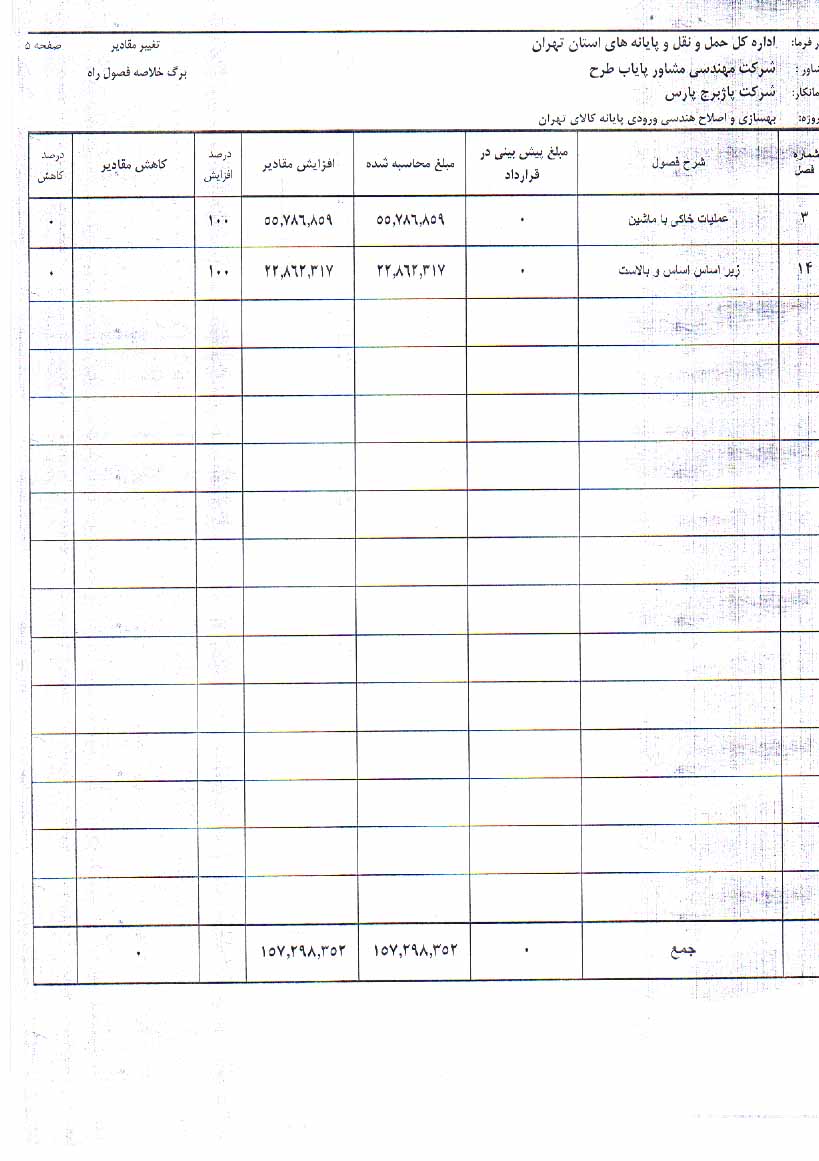 ر فرما: اداره کل حمل و نقل و پایانه های استان تهران تغییر مقادیر صفحه ۵
شاور : شرکت مهندسی مشاور پایاب طرح برگ خلاصه فصول راه
مانکار: شرکت پاژبرج پارس
روزه: بهسازی و اصلاح هندسی ورودی پایانه کالای تهران
شماره فصل شرح فصول مبلغ پیش بینی در قرارداد مبلغ محاسبه شده افزایش مقادیر درصد افزایش کاهش مقادیر درصد کاهش
۳ عملیات خاکی با ماشین ۰ ۵۵,۷۸۶,۸۵۹ ۵۵,۷۸۶,۸۵۹ ۱۰۰ ۰
۱۴ زیر اساس اساس و بالاست ۰ ۲۲,۸۶۲,۳۱۷ ۲۲,۸۶۲,۳۱۷ ۱۰۰ ۰
جمع ۰ ۱۵۷,۲۹۸,۳۵۲ ۱۵۷,۲۹۸,۳۵۲ ۰